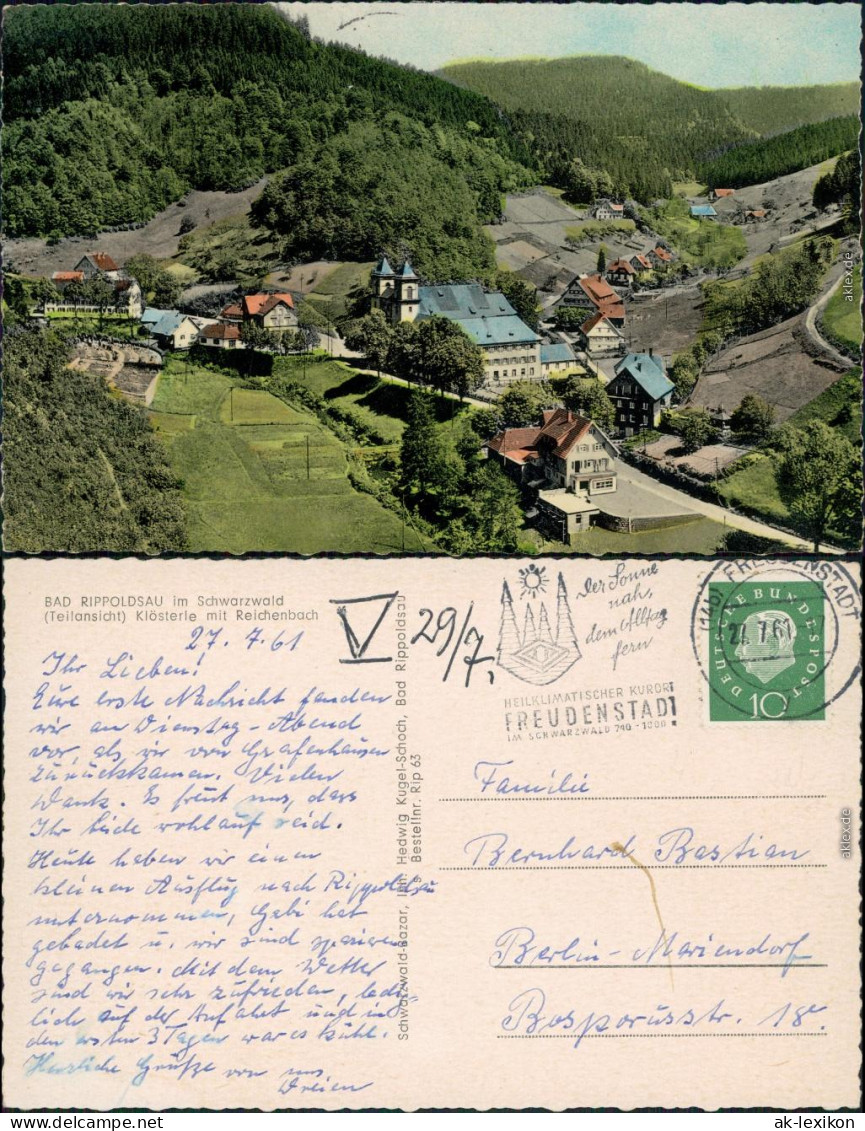 BAD RIPPOLDSAU im Schwarzwald
(Teilansicht) Klösterle mit Reichenbach
27.7.61
Ihr Lieben!
Eure erste Nachricht fanden
wir am Dienstag-Abend
vor, als wir von Grafenhausen
zurückkamen. Vielen
Dank. Es freut uns, dass
Ihr beide wohlauf seid.
Heute haben wir einen
kleinen Ausflug nach Rippoldsau
unternommen, Gabi hat
gebadet u. wir sind spazieren
gegangen. Mit dem Wetter
sind wir sehr zufrieden, ledig-
lich auf der Anfahrt und in
den ersten 3 Tagen war es kühl.
Herzliche Grüße von uns
Dreien
V
29/7.
Schwarzwald-Bazar, Inh. Hedwig Kugel-Schoch, Bad Rippoldsau
Bestellnr. Rip 63
Der Sonne
nah,
dem Alltag
fern
HEILKLIMATISCHER KURORT
FREUDENSTADT
IM SCHWARZWALD 740-1000
(14b) FREUDENSTADT
27.7.61
DEUTSCHE BUNDESPOST
10
Familie
Bernhard Bastian
Berlin-Mariendorf
Bosporusstr. 18
aklex.de
aklex.de
aklex.de
ak-lexikon